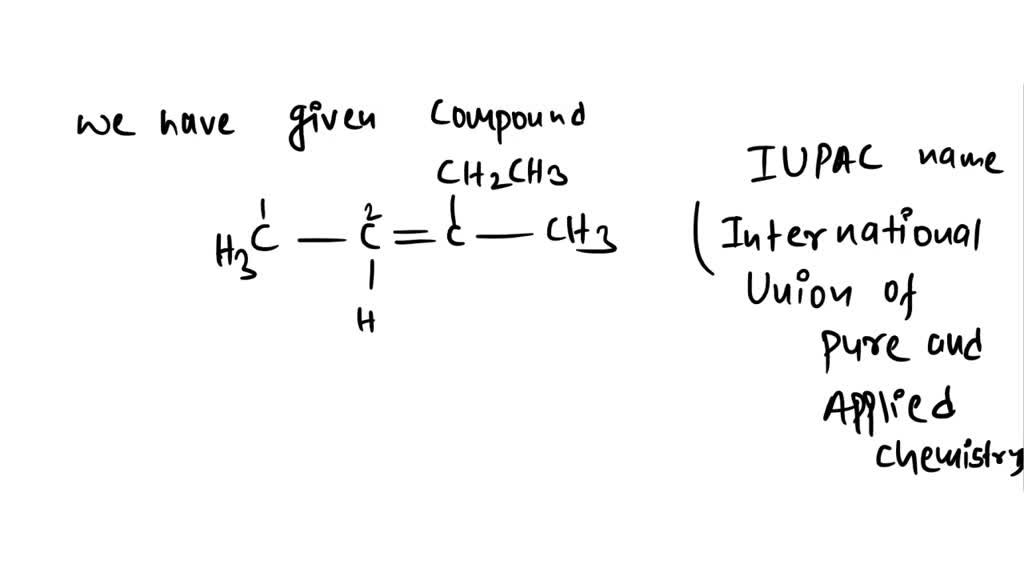 we have given compound
CH2CH3
1 2
H3C — C = C — CH3
H
IUPAC name
(International
Union of
pure and
Applied
chemistry